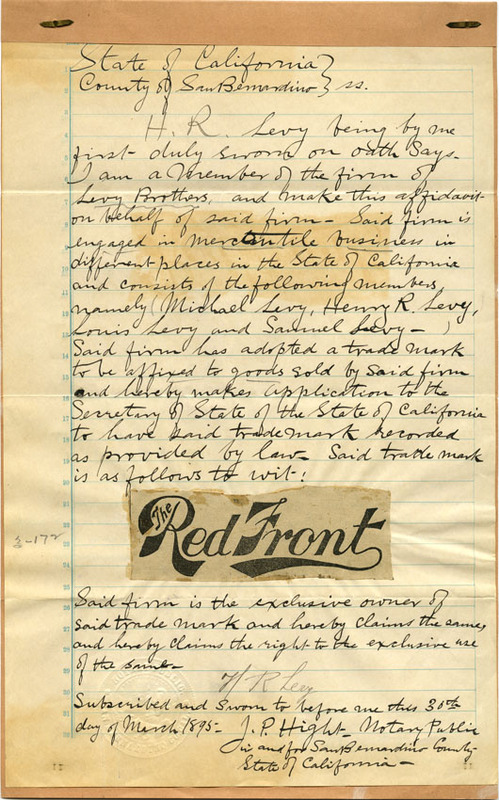 State of California }
County of San Bernardino } ss.
H. R. Levy being by me
first duly sworn on oath Says-
I am a Member of the firm of
Levy Brothers, and make this affidavit
on behalf of said firm - Said firm is
engaged in mercantile business in
different places in the State of California
and consists of the following members
namely (Michael Levy, Henry R. Levy,
Louis Levy and Samuel Levy - )
Said firm has adopted a trade mark
to be affixed to goods sold by said firm
and hereby makes application to the
Secretary of State of the State of California
to have said trade mark recorded
as provided by law - Said trade mark
is as follows to wit:
The Red Front
3-172
Said firm is the exclusive owner of
said trade mark and hereby claims the same
and hereby claims the right to the exclusive use
of the same -
H R Levy
Subscribed and Sworn to before me this 30th
day of March 1895 - J. P. Hight - Notary Public
in and for San Bernardino County
State of California -